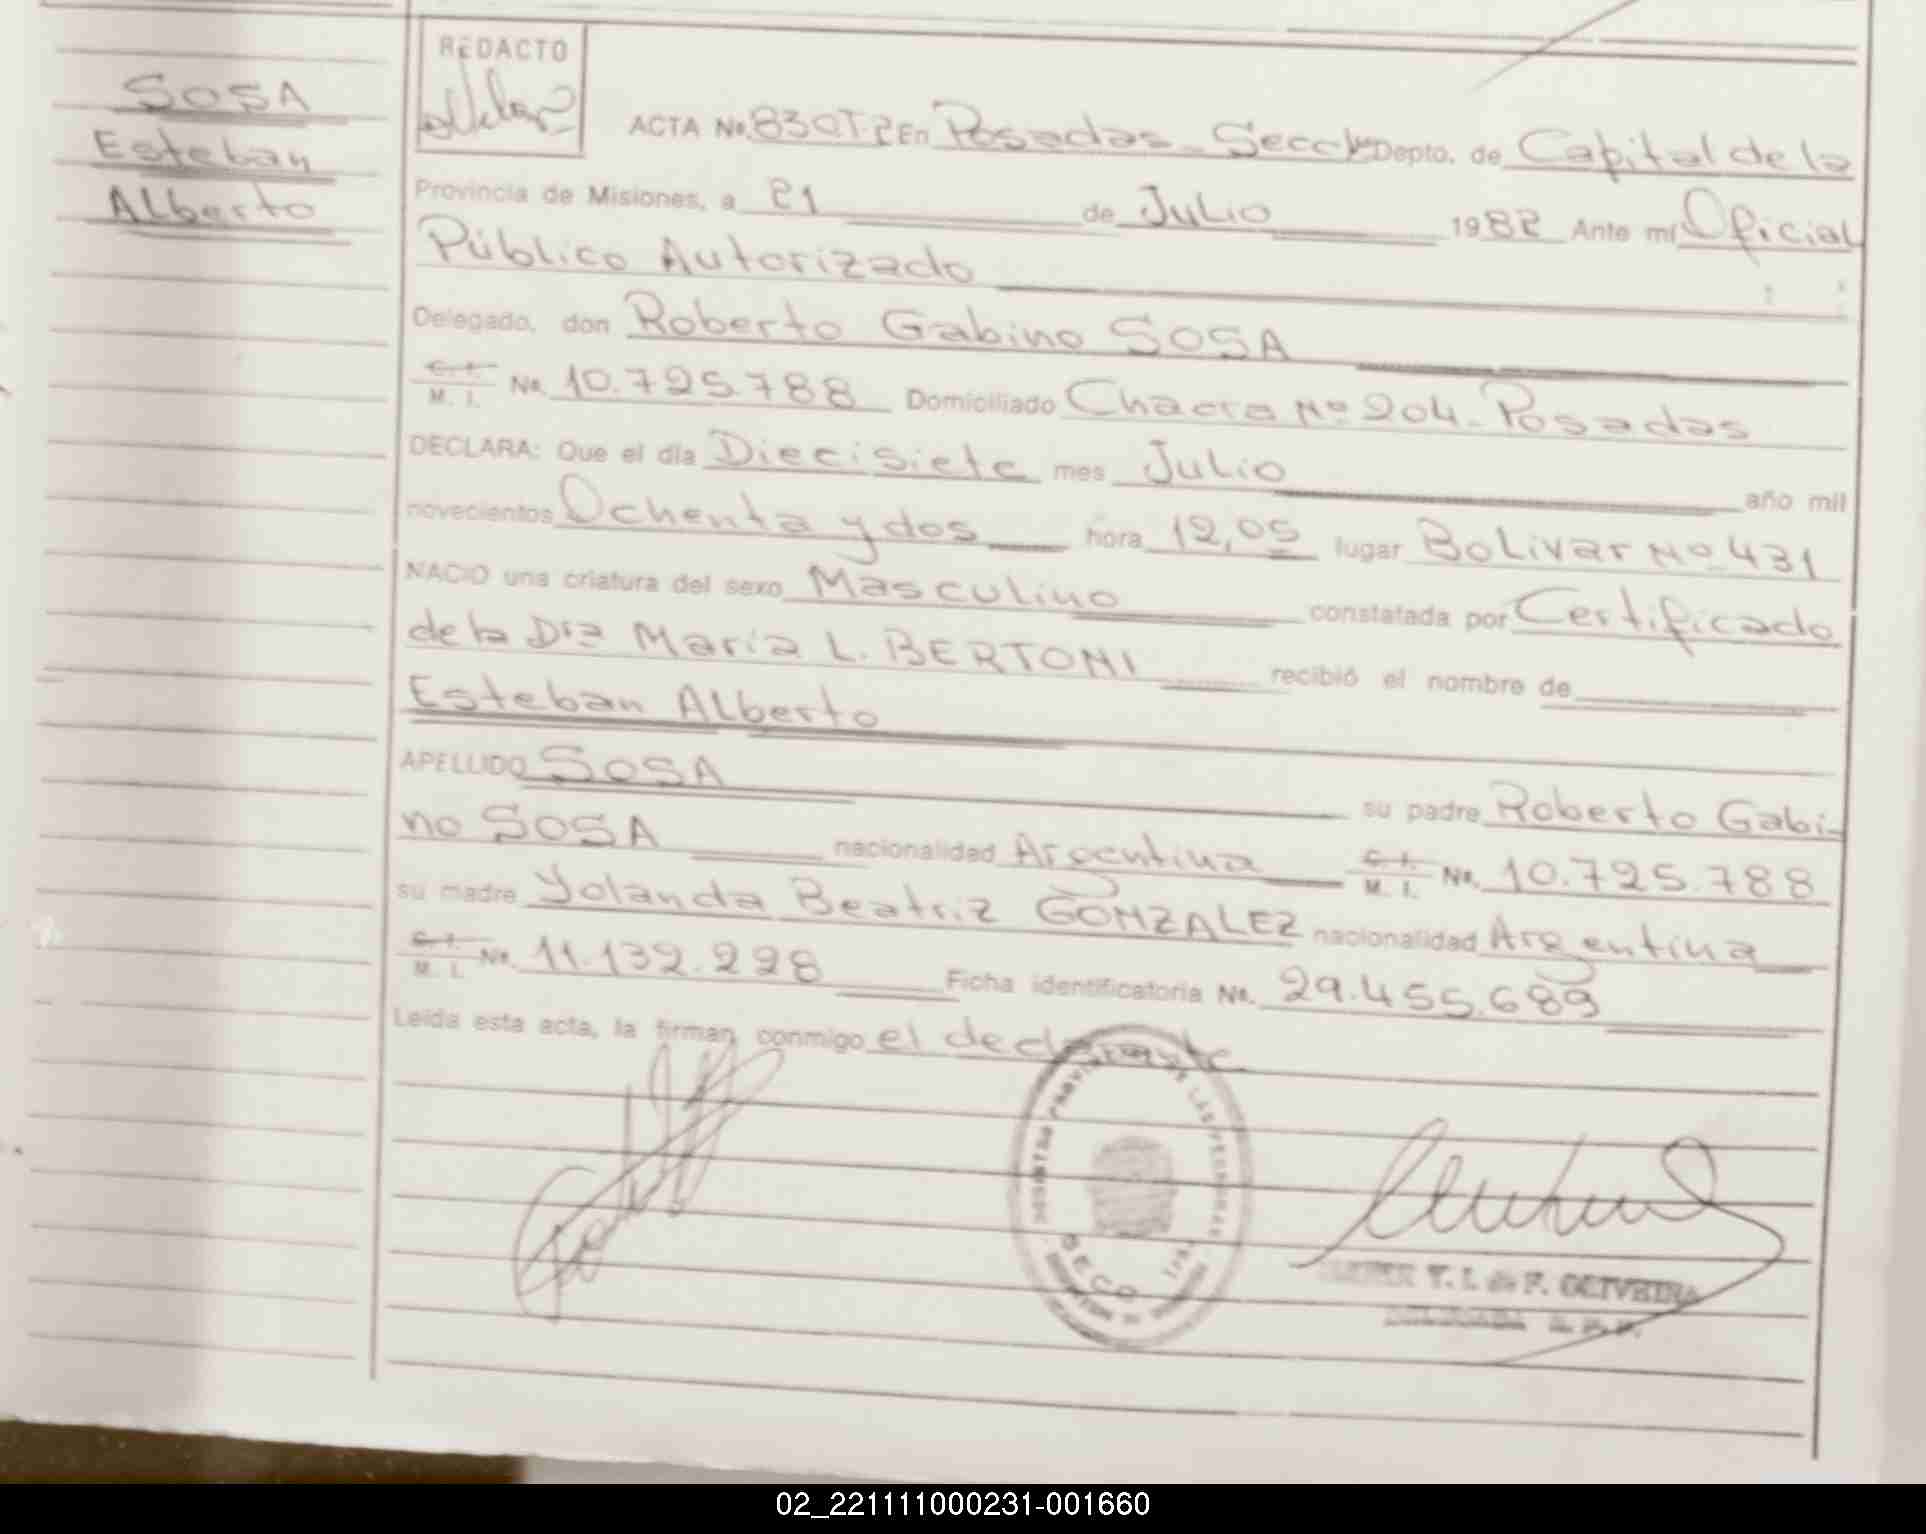 SOSA
Esteban
Alberto
REDACTO
ACTA No. 830T.2 En Posadas - Secc Depto. de Capital de la
Provincia de Misiones, a 21 de Julio 1982 Ante mí Oficial
Público Autorizado
Delegado, don Roberto Gabino SOSA
C. I. M. I. No. 10.725.788 Domiciliado Chacra Nº 204 - Posadas
DECLARA: Que el día Diecisiete mes Julio año mil
novecientos Ochenta y dos hora 12,05 lugar Bolivar Nº 431
NACIO una criatura del sexo Masculino constatada por Certificado
de la Dra María L. BERTONI recibió el nombre de
Esteban Alberto
APELLIDO SOSA su padre Roberto Gabi-
no SOSA nacionalidad Argentina C. I. M. I. No. 10.725.788
su madre Yolanda Beatriz GONZALEZ nacionalidad Argentina
C. I. M. I. No. 11.132.228 Ficha identificatoria No. 29.455.689
Leída esta acta, la firman conmigo el declarante
T. I. de F. OLIVEIRA
02_221111000231-001660